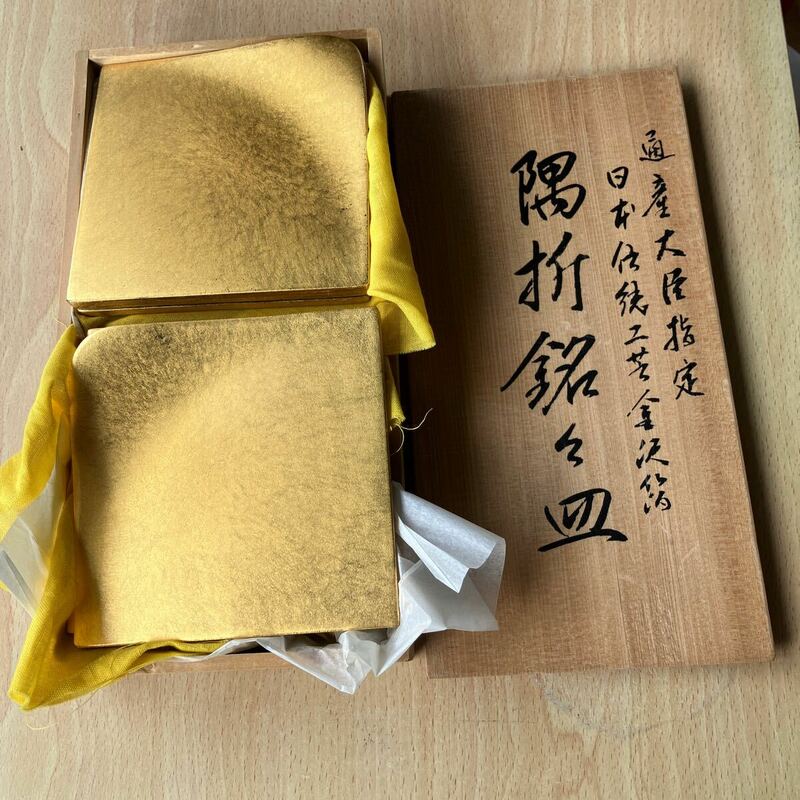 通産大臣指定
日本伝統工芸金沢箔
隅折銘々皿